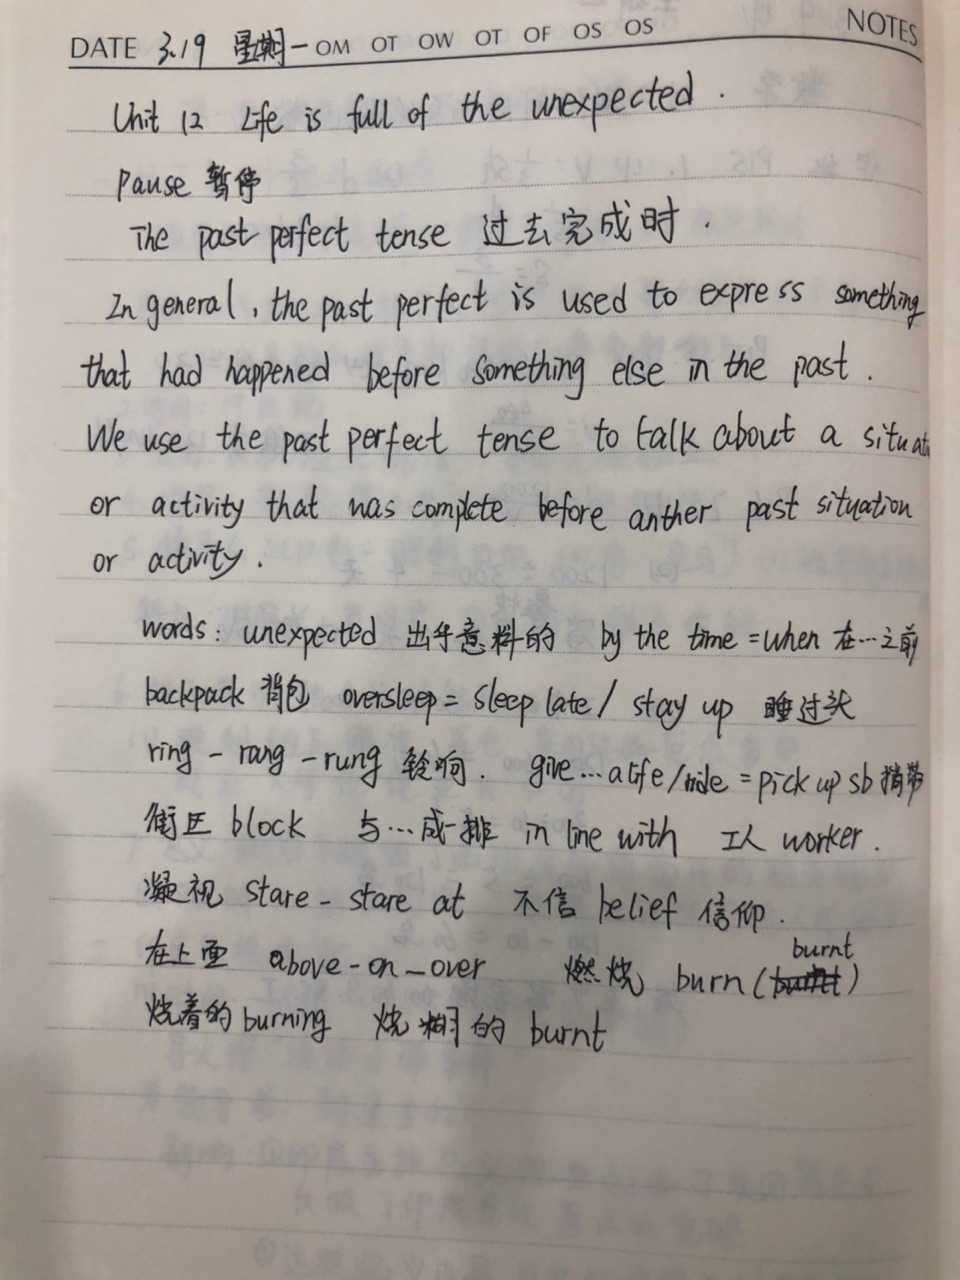 DATE 3.19 星期一 OM OT OW OT OF OS OS NOTES
Unit 12 Life is full of the unexpected.
Pause 暂停
The past perfect tense 过去完成时.
In general, the past perfect is used to express something
that had happened before something else in the past.
We use the past perfect tense to talk about a situati
or activity that was complete before anther past situation
or activity.
words: unexpected 出乎意料的 by the time =when 在…之前
backpack 背包 oversleep = sleep late / stay up 睡过头
ring - rang - rung 铃响. give…a life/ride = pick up sb 捎带
街区 block 与…成一排 in line with 工人 worker.
凝视 stare - stare at 不信 belief 信仰.
在上面 above-on-over 燃烧 burn (burnt)
烧着的 burning 烧糊的 burnt